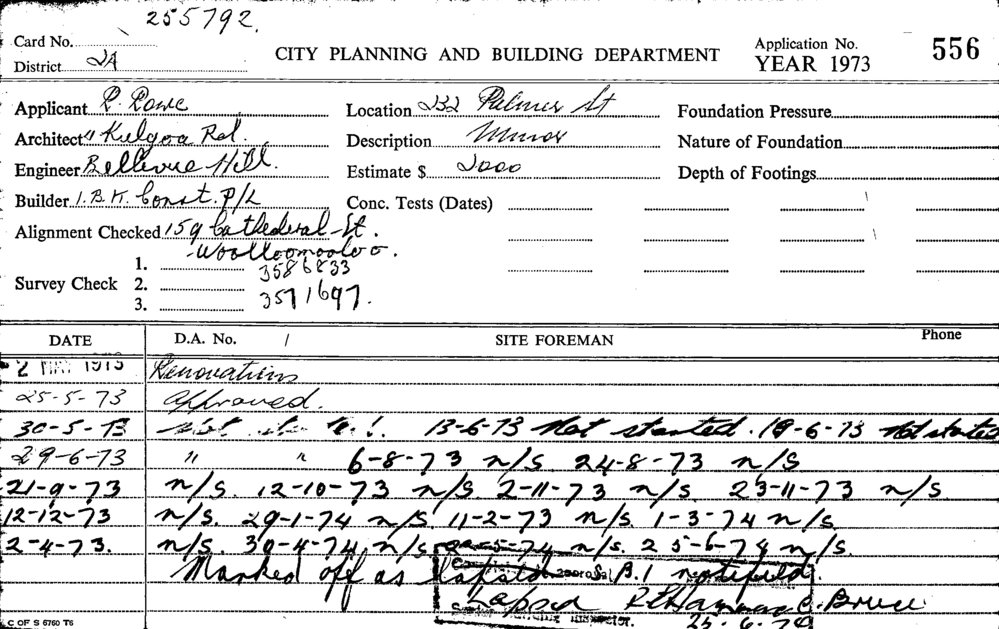 255792.
Card No.
District 2A
CITY PLANNING AND BUILDING DEPARTMENT
Application No. 556
YEAR 1973
Applicant R. Rowe
Architect 11 Kulgoa Rd.
Engineer Bellevue Hill.
Builder I.B.K. Const. P/L
Alignment Checked 159 Cathederal St.
Woolloomooloo.
Survey Check 1. 3586833
2.
3. 3571697.
Location 232 Palmer St
Description Minor
Estimate $ 2000
Conc. Tests (Dates)
Foundation Pressure
Nature of Foundation
Depth of Footings
DATE D.A. No. / SITE FOREMAN Phone
2 MAY 1973 Renovations
25-5-73 Approved.
30-5-73 Not 13-6-73 Not started. 19-6-73 Not started
29-6-73 " " 6-8-73 n/s. 24-8-73 n/s
21-9-73 n/s. 12-10-73 n/s. 2-11-73 n/s. 23-11-73 n/s
12-12-73 n/s. 29-1-74 n/s. 11-2-73 n/s. 1-3-74 n/s.
2-4-73. n/s. 30-4-74 n/s -5-74 n/s. 25-6-74 n/s.
Marked off as lapsed B.I notified.
Lapsed C. Bruce
Inspector. 25.6.74
C OF S 6760 T6